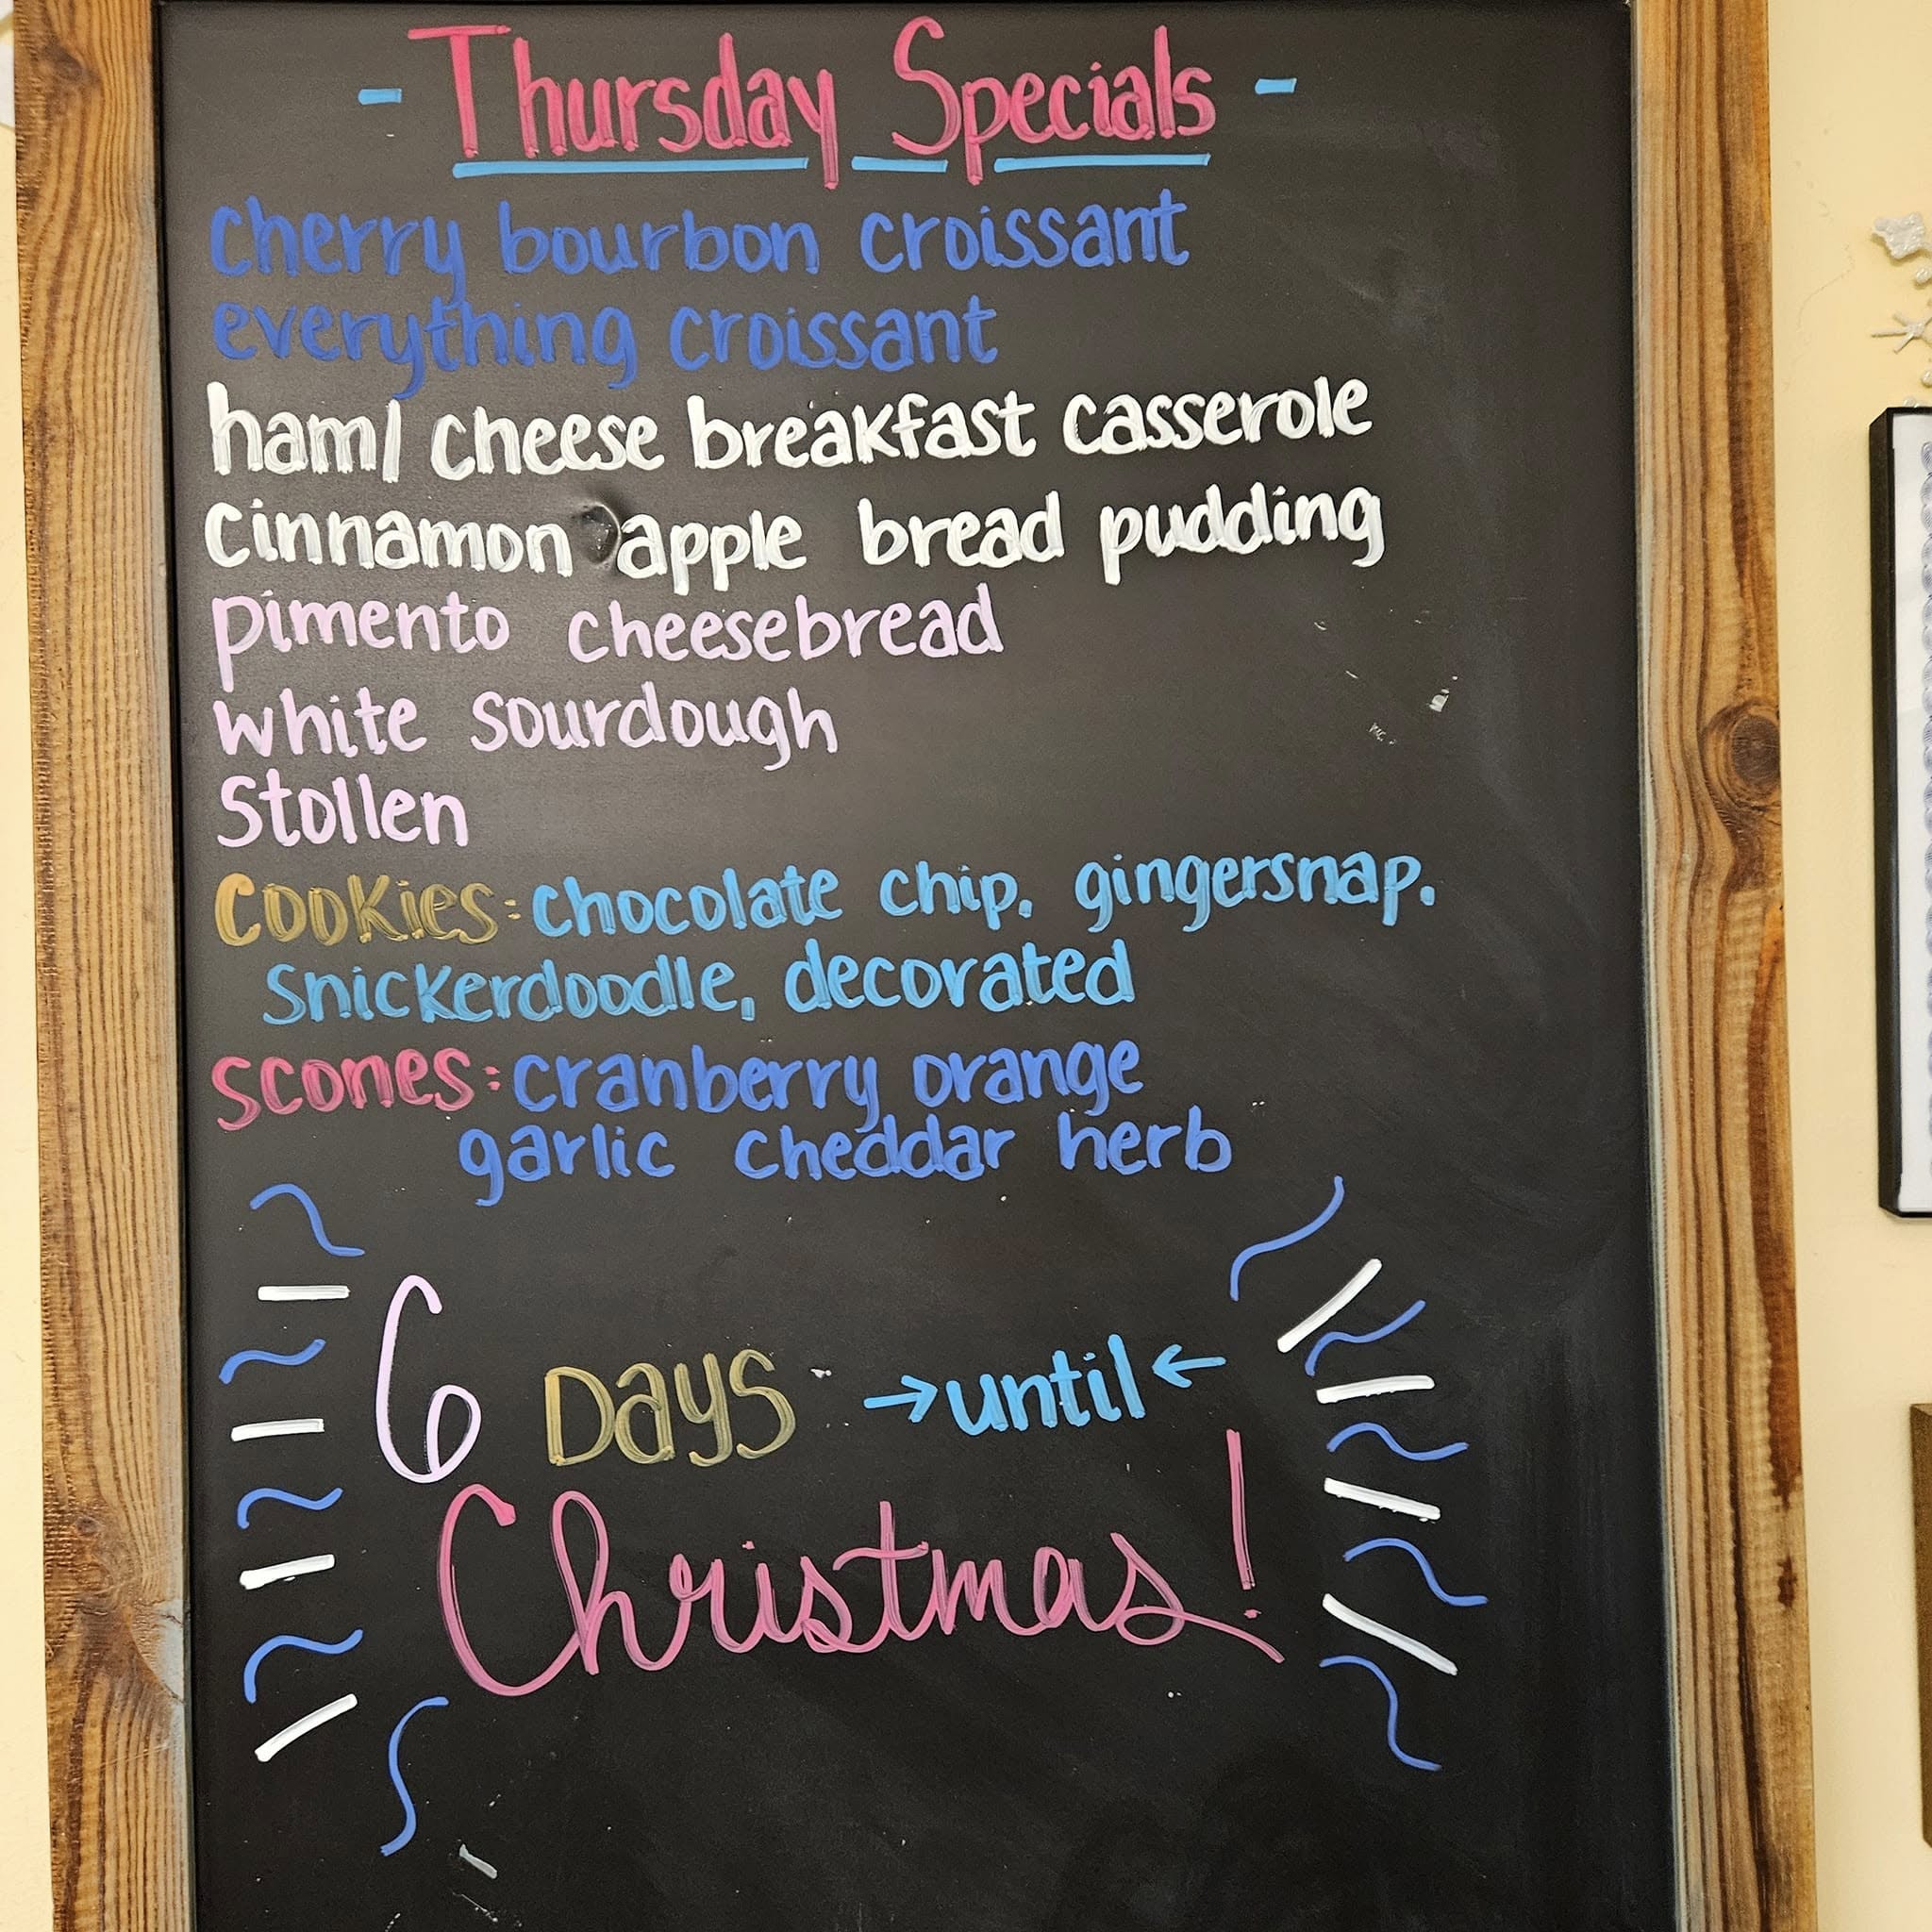 - Thursday Specials -
cherry bourbon croissant
everything croissant
ham/ cheese breakfast casserole
cinnamon apple bread pudding
pimento cheesebread
white sourdough
Stollen
Cookies: chocolate chip, gingersnap,
snickerdoodle, decorated
Scones: cranberry orange
garlic cheddar herb
6 Days →until←
Christmas!